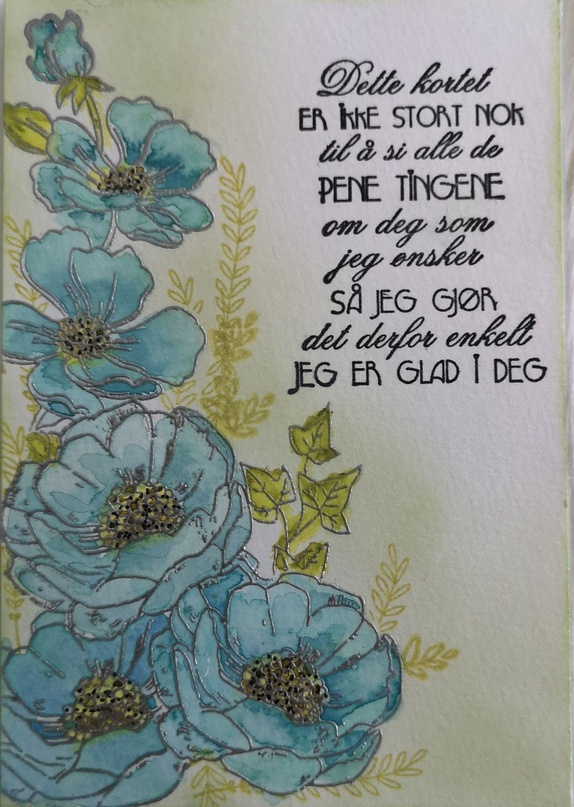 Dette kortet
ER IKKE STORT NOK
til å si alle de
PENE TINGENE
om deg som
jeg ønsker
SÅ JEG GJØR
det derfor enkelt
JEG ER GLAD I DEG